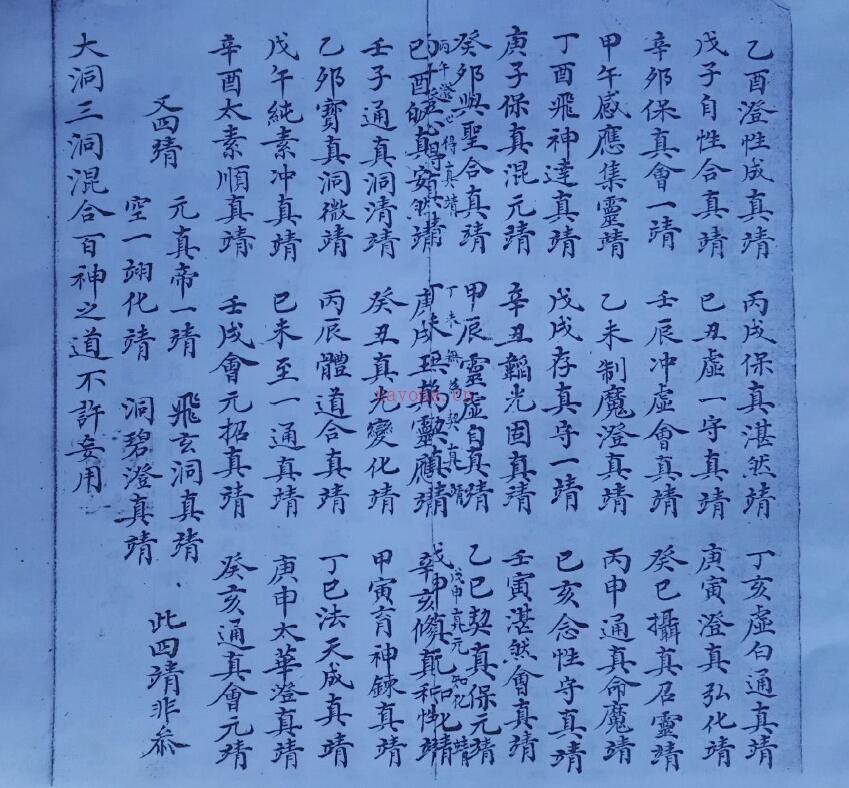 乙酉澄性成真靖 丙戌保真湛然靖 丁亥虛白通真靖
戊子自性合真靖 己丑虛一守真靖 庚寅澄真弘化靖
辛卯保真會一靖 壬辰冲虛會真靖 癸巳攝真召靈靖
甲午感應集靈靖 乙未制魔澄真靖 丙申通真命魔靖
丁酉飛神達真靖 戊戌存真守一靖 己亥念性守真靖
庚子保真混元靖 辛丑韜光固真靖 壬寅湛然會真靖
癸卯與聖合真靖 甲辰靈虛自真靖 乙巳契真保元靖
丙午澄心得真靖 丁未無為契真靖 戊申真元知化靖
壬子通真洞清靖 癸丑真光變化靖 甲寅育神鍊真靖
乙卯寶真洞微靖 丙辰體道合真靖 丁巳法天成真靖
戊午純素冲真靖 己未至一通真靖 庚申太華澄真靖
辛酉太素順真靖 壬戌會元招真靖 癸亥通真會元靖
又四靖 元真帝一靖 飛玄洞真靖
空一翊化靖 洞碧澄真靖 此四靖非叅
大洞三洞混合百神之道不許妄用
nayona.cn